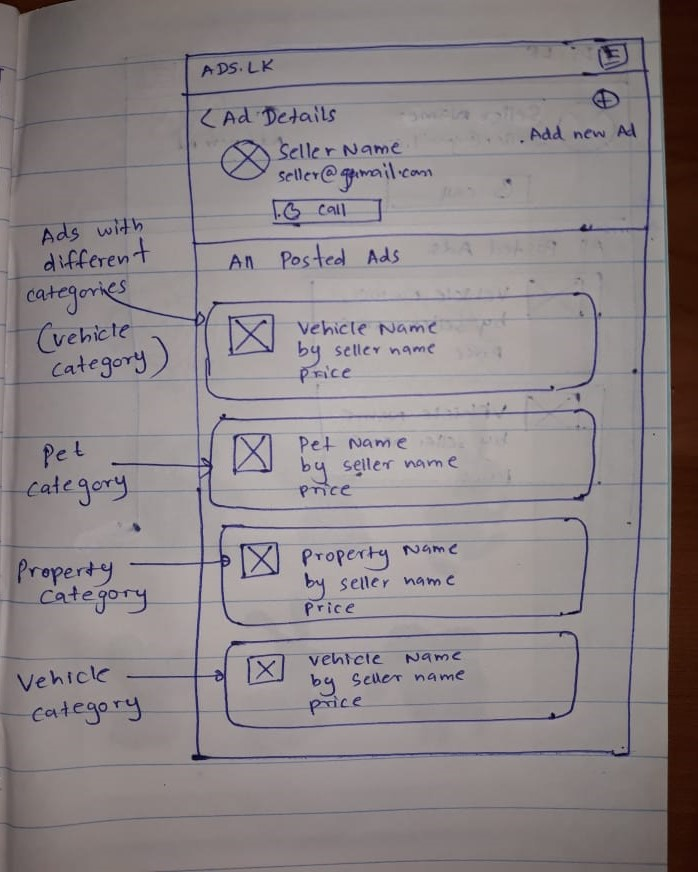 ADS.LK
< Ad Details
Seller Name
seller@gmail.com
Add new Ad
call
All Posted Ads
Ads with
different
categories
(vehicle
category)
Vehicle Name
by seller name
price
Pet
category
Pet Name
by seller name
price
Property
category
Property Name
by seller name
price
Vehicle
category
Vehicle Name
by seller name
price